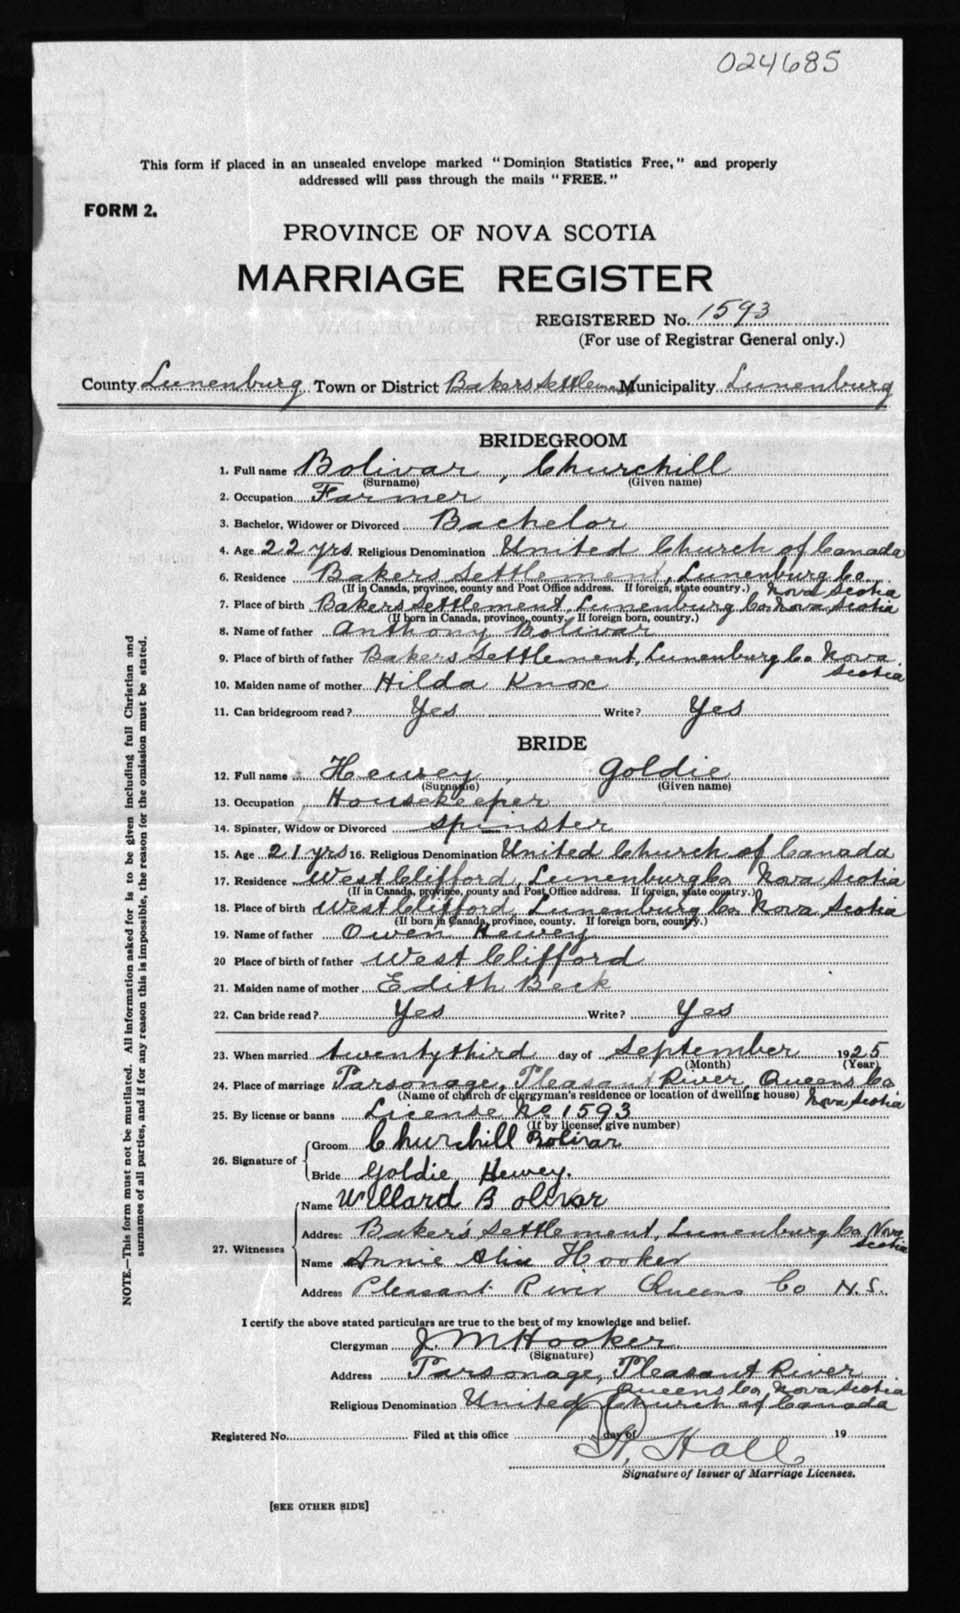 024685
This form if placed in an unsealed envelope marked "Dominion Statistics Free," and properly
addressed will pass through the mails "FREE."
FORM 2.
PROVINCE OF NOVA SCOTIA
MARRIAGE REGISTER
REGISTERED No. 1593
(For use of Registrar General only.)
County Lunenburg Town or District Bakers Settlement Municipality Lunenburg
BRIDEGROOM
1. Full name Bolivar, Churchill
(Surname) (Given name)
2. Occupation Farmer
3. Bachelor, Widower or Divorced Bachelor
4. Age 22 yrs Religious Denomination United Church of Canada
6. Residence Bakers Settlement, Lunenburg Co.
(If in Canada, province, county and Post Office address. If foreign, state country.) Nova Scotia
7. Place of birth Bakers Settlement, Lunenburg Co Nova Scotia
(If born in Canada, province, county. If foreign born, country.)
8. Name of father Anthony Bolivar
9. Place of birth of father Bakers Settlement, Lunenburg Co Nova
Scotia
10. Maiden name of mother Hilda Knox
11. Can bridegroom read? Yes Write? Yes
BRIDE
12. Full name Hewey, Goldie
(Surname) (Given name)
13. Occupation Housekeeper
14. Spinster, Widow or Divorced spinster
15. Age 21 yrs 16. Religious Denomination United Church of Canada
17. Residence West Clifford, Lunenburg Co Nova Scotia
(If in Canada, province, county and Post Office address. If foreign, state country.)
18. Place of birth West Clifford, Lunenburg Co Nova Scotia
(If born in Canada, province, county. If foreign born, country.)
19. Name of father Owen Hewey
20 Place of birth of father West Clifford
21. Maiden name of mother Edith Beck
22. Can bride read? Yes Write? Yes
23. When married twenty third day of September 1925
(Month) (Year)
24. Place of marriage Parsonage, Pleasant River, Queens Co
(Name of church or clergyman's residence or location of dwelling house) Nova Scotia
25. By license or banns License No 1593
(If by license, give number)
26. Signature of Groom Churchill Bolivar
Bride Goldie Hewey.
27. Witnesses Name Willard Bolivar
Address Baker's Settlement, Lunenburg Co Nova
Scotia
Name Annie Hooker
Address Pleasant River Queens Co N.S.
I certify the above stated particulars are true to the best of my knowledge and belief.
Clergyman J. M Hooker
(Signature)
Address Parsonage, Pleasant River
Queens Co, Nova Scotia
Religious Denomination United Church of Canada
Registered No. Filed at this office day of 19
Hall
Signature of Issuer of Marriage Licenses.
[SEE OTHER SIDE]
NOTE.—This form must not be mutilated. All information asked for is to be given including full Christian and
surnames of all parties, and if for any reason this is impossible, the reason for the omission must be stated.